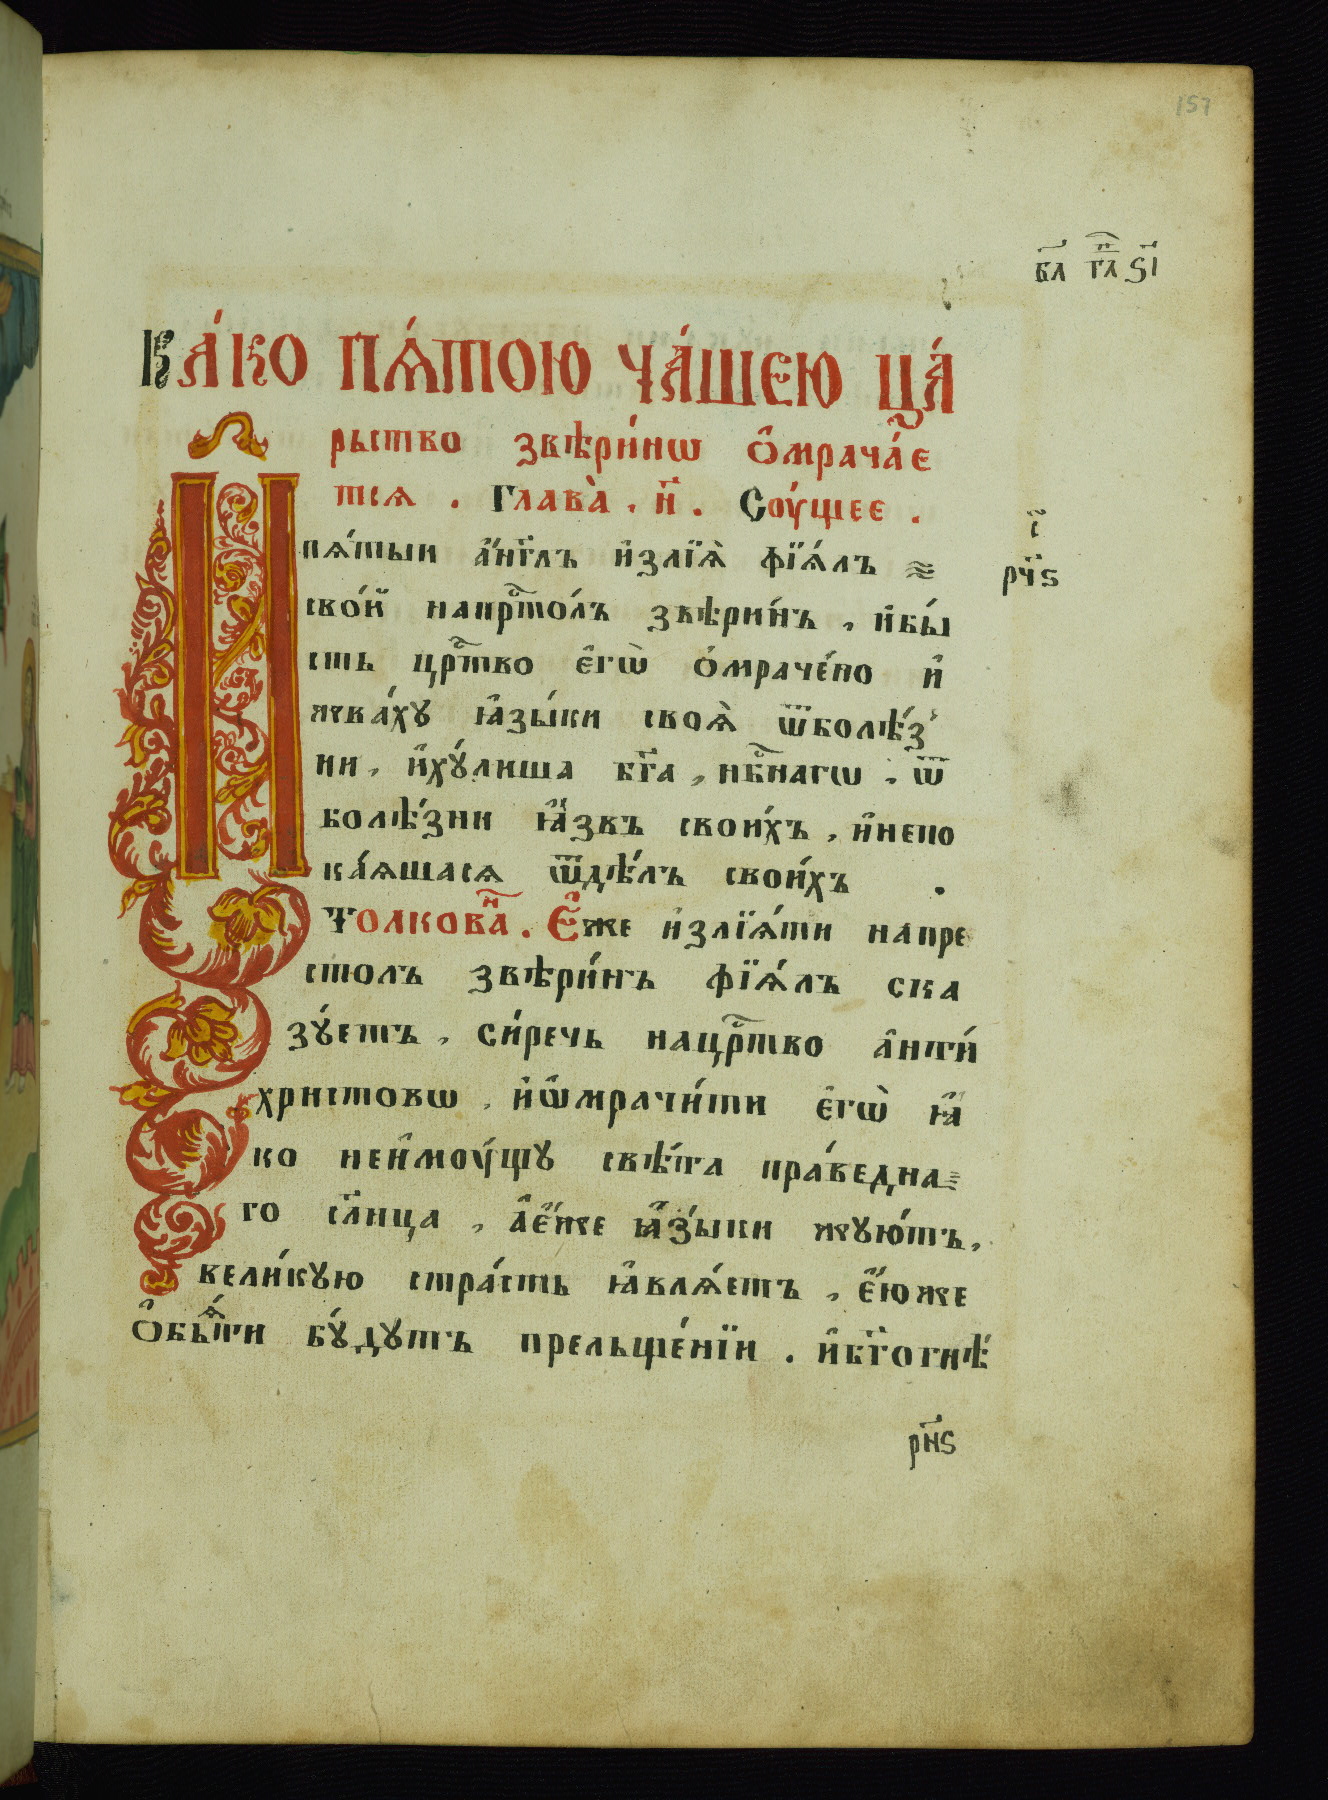 157
вл҃ гл҃ п ѕ҃і
Ка́ко пѧ́тою ча́шею ца́
рьство звѣри́нѡ ѻ҆мрача́е
тсѧ . Глава̀ . н҃ . Соу́щее .
И пѧ́тыи а҆́нг҃лъ и҆злїѧ̀ фїѧ́лъ
с҃
рч҃ѕ
сво́й напрⷭ҇то́лъ звѣри́нъ , и҆бы́
сть црⷭ҇тво є҆гѡ̀ ѻ҆мраче́но и҆
жва́ху ꙗ҆зы́ки своѧ̀ ѿболѣ́з
ни , и҆ху́лиша бг҃а , нбⷭ҇нагѡ . ѿ
болѣ́зни ꙗ҆́звъ свои́хъ , и҆непо
ка́ѧшасѧ ѿдѣ́лъ свои́хъ .
Толковаⷩ҇ . Е҆́же и҆злїѧ́ти напре
столъ звѣри́нъ фїѧ́лъ ска
зу́етъ , си́речь нацрⷭ҇тво а҆нти́
христовѡ , и҆ѡ҆мрачи́ти є҆гѡ̀ ꙗ҆́
ко неи҆моу́щу свѣ́та пра́ведна
го сл҃нца , а҆є҆́же ꙗ҆зы́ки жую́тъ ,
вели́кую стра́сть ꙗ҆влѧ́етъ , є҆́юже
ѻ҆бьѧ́ти бу́дутъ прельще́нїи . и҆бг҃огнѣ́
рн҃ѕ